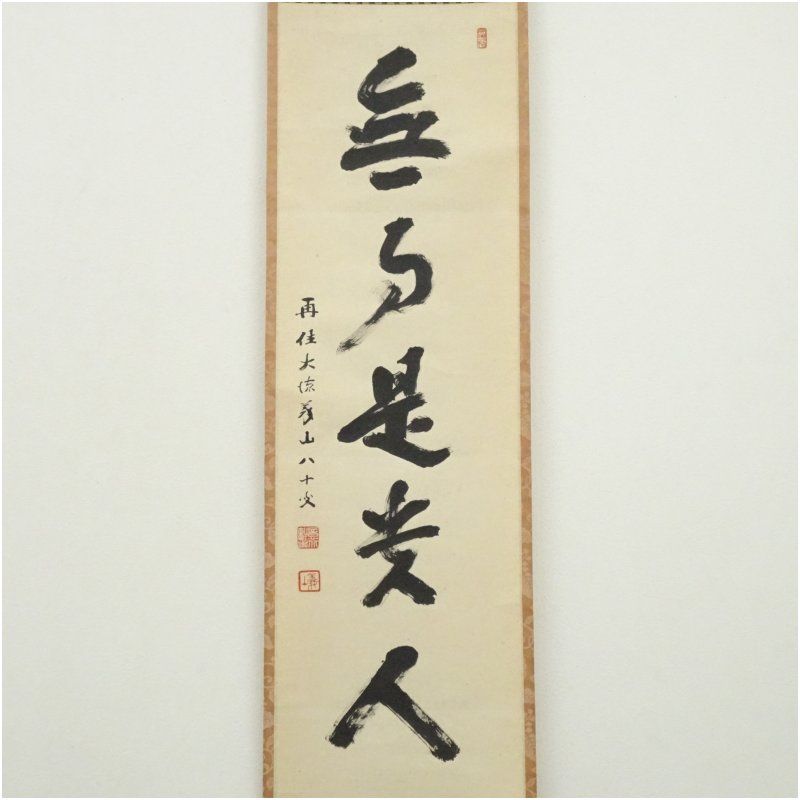 無事是貴人
再住大徳義山八十叟